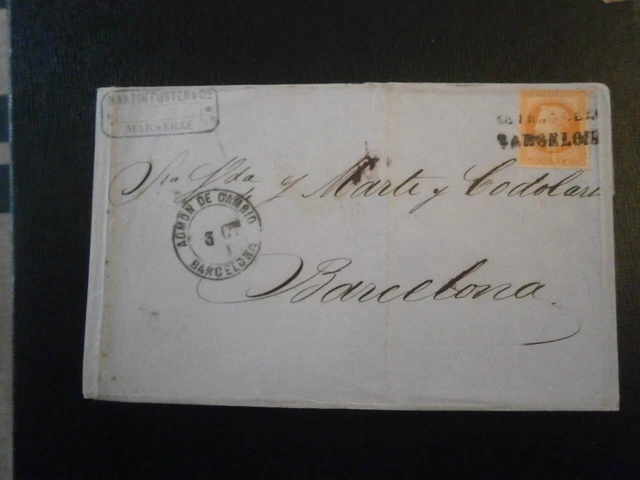 MARTIN FUSTER & Cie
MARSEILLE
BARCELONA
Sra Vda y Marti y Codolar
ADMON DE CAMBIO
3
BARCELONA
Barcelona.